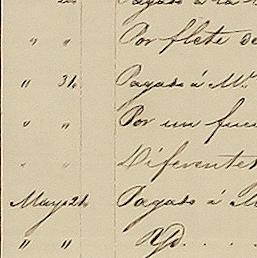 Pagado á la
" " Por flete de
" 31 Pagado á Mr.
" " Por un
" " Diferentes
Mayo 21 Pagado á
" " Yd. . . .